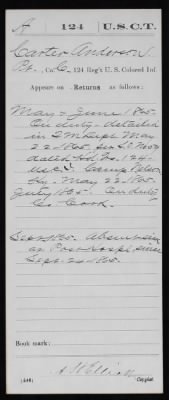 A | 124 | U.S.C.T.
Carter Anderson
Pt., Co. C, 124 Reg't U. S. Colored Inf.
Appears on Returns as follows:
May & June 1865.
On duty - detailed
in May
22 1865. per
dated 124
U.S.C.T. Camp Nelson
Ky. May 22 - 1865.
July 1865. On duty
Co. Cook.
Sept 1865. Absent sick
Post Hospl. since
Sept. 20 1865.
Book mark:
(546)
Copyist.